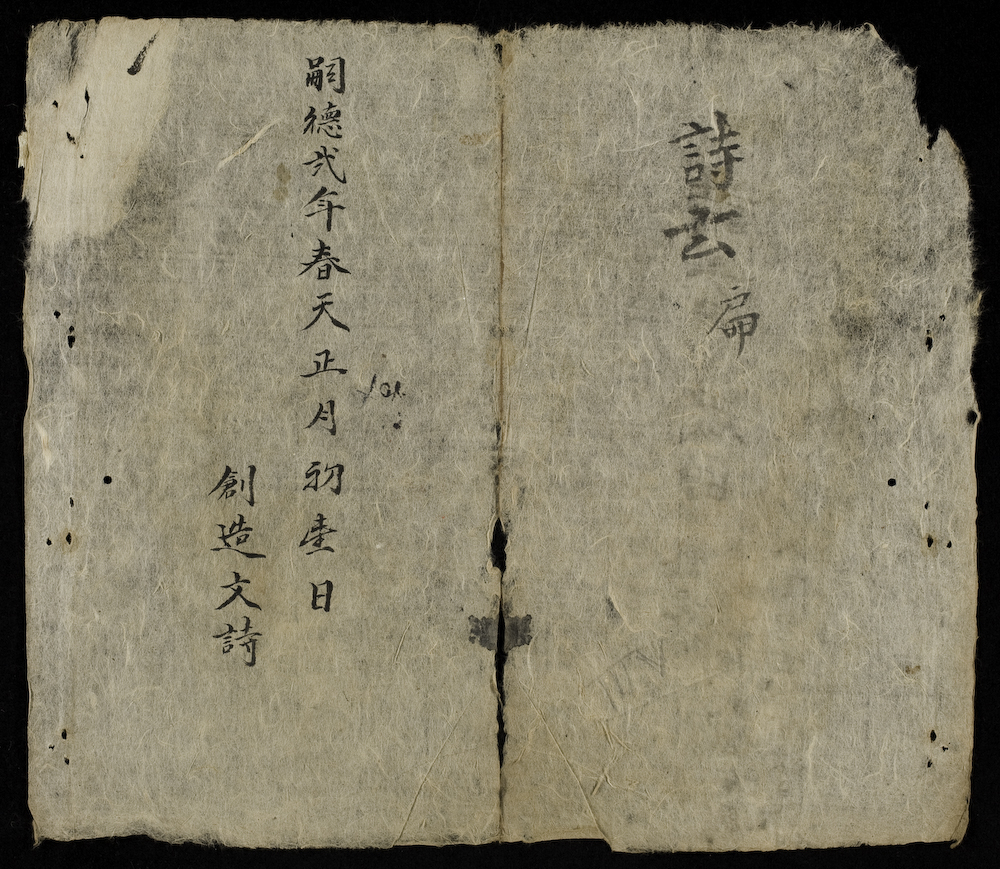 詩玄
扁
嗣德弍年春天正月初壹日
創造文詩